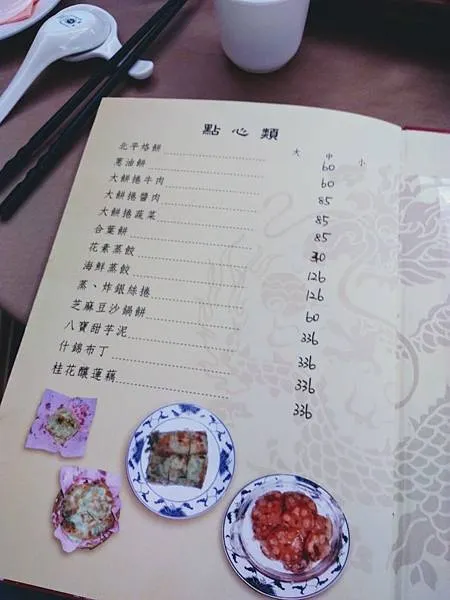 點心類
大 中 小
北平烙餅 60
蔥油餅 60
大餅捲牛肉 85
大餅捲醬肉 85
大餅捲蔬菜 85
合葉餅 30
花素蒸餃 126
海鮮蒸餃 126
蒸、炸銀絲捲 60
芝麻豆沙鍋餅 336
八寶甜芋泥 336
什錦布丁 336
桂花釀蓮藕 336